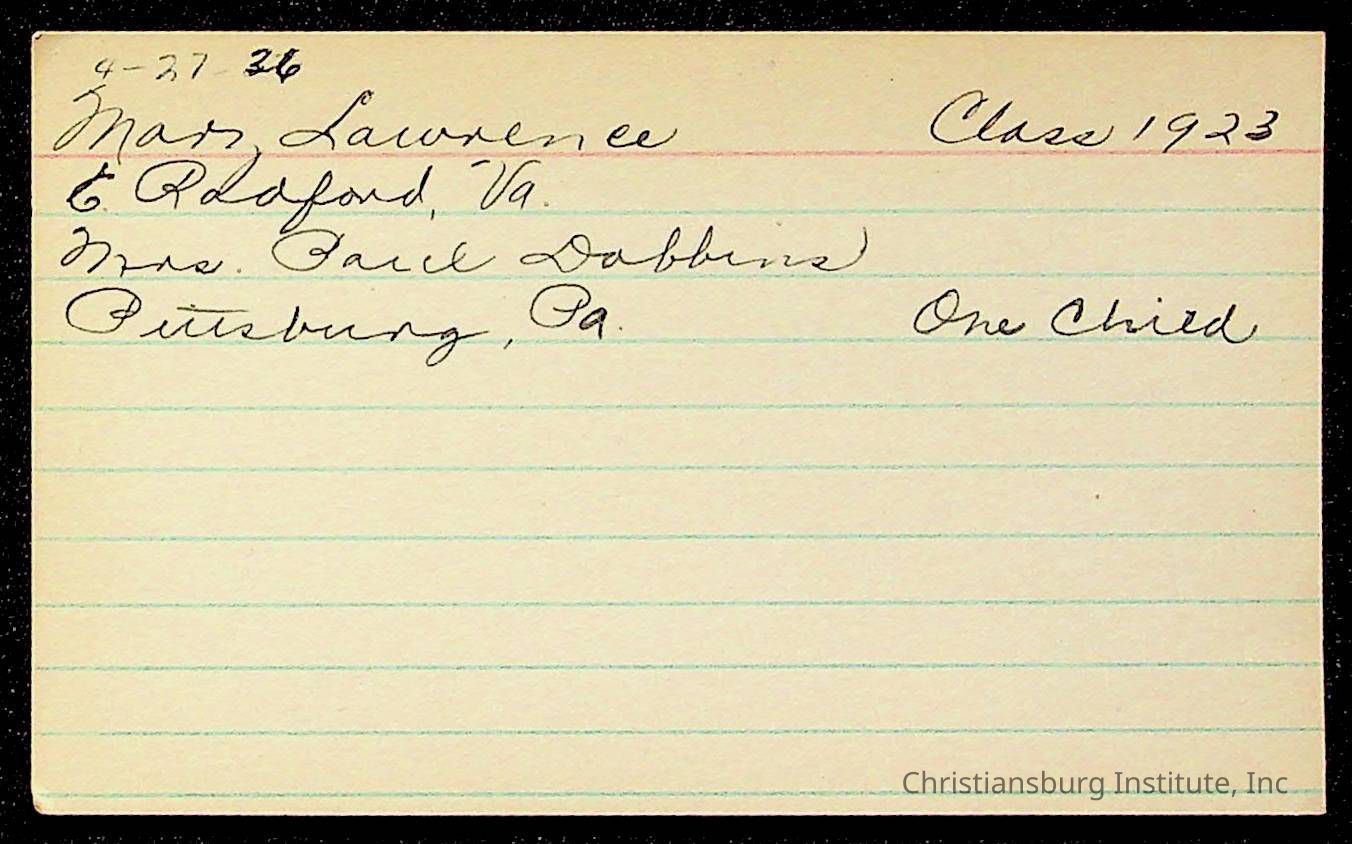 4-27-36
Mary Lawrence Class 1923
E. Radford, Va.
Mrs. Paul Dobbins
Pittsburg, Pa. One Child
Christiansburg Institute, Inc